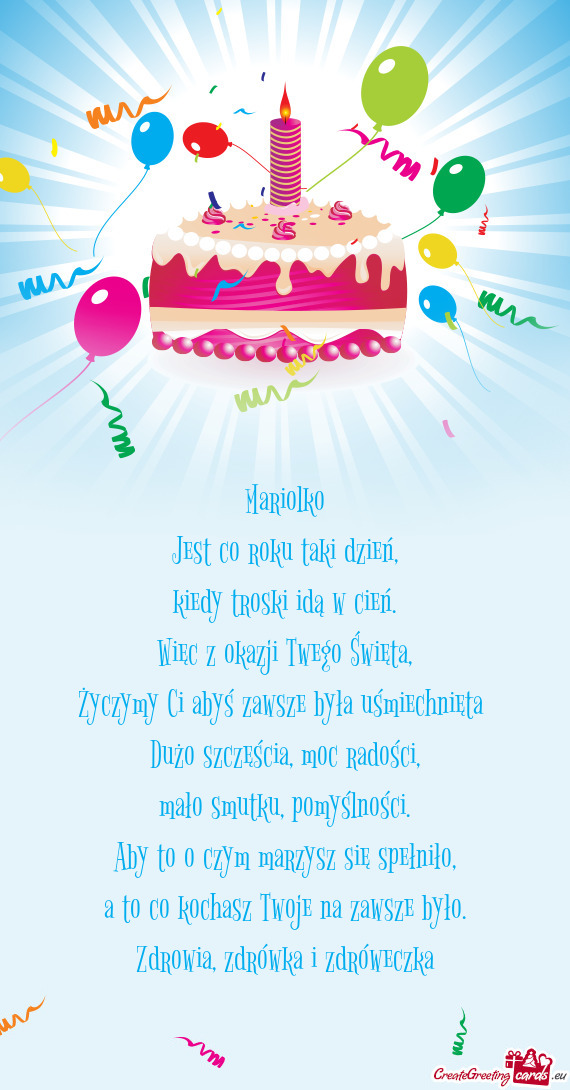 Mariolko
Jest co roku taki dzień,
kiedy troski idą w cień.
Więc z okazji Twego Święta,
Życzymy Ci abyś zawsze była uśmiechnięta
Dużo szczęścia, moc radości,
mało smutku, pomyślności.
Aby to o czym marzysz się spełniło,
a to co kochasz Twoje na zawsze było.
Zdrowia, zdrówka i zdróweczka
CreateGreeting cards .eu